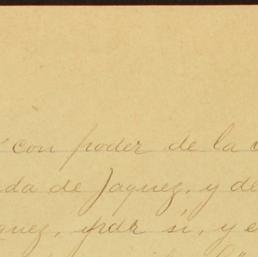 con poder de la
da de Jaquez, y de
quez, por sí, y